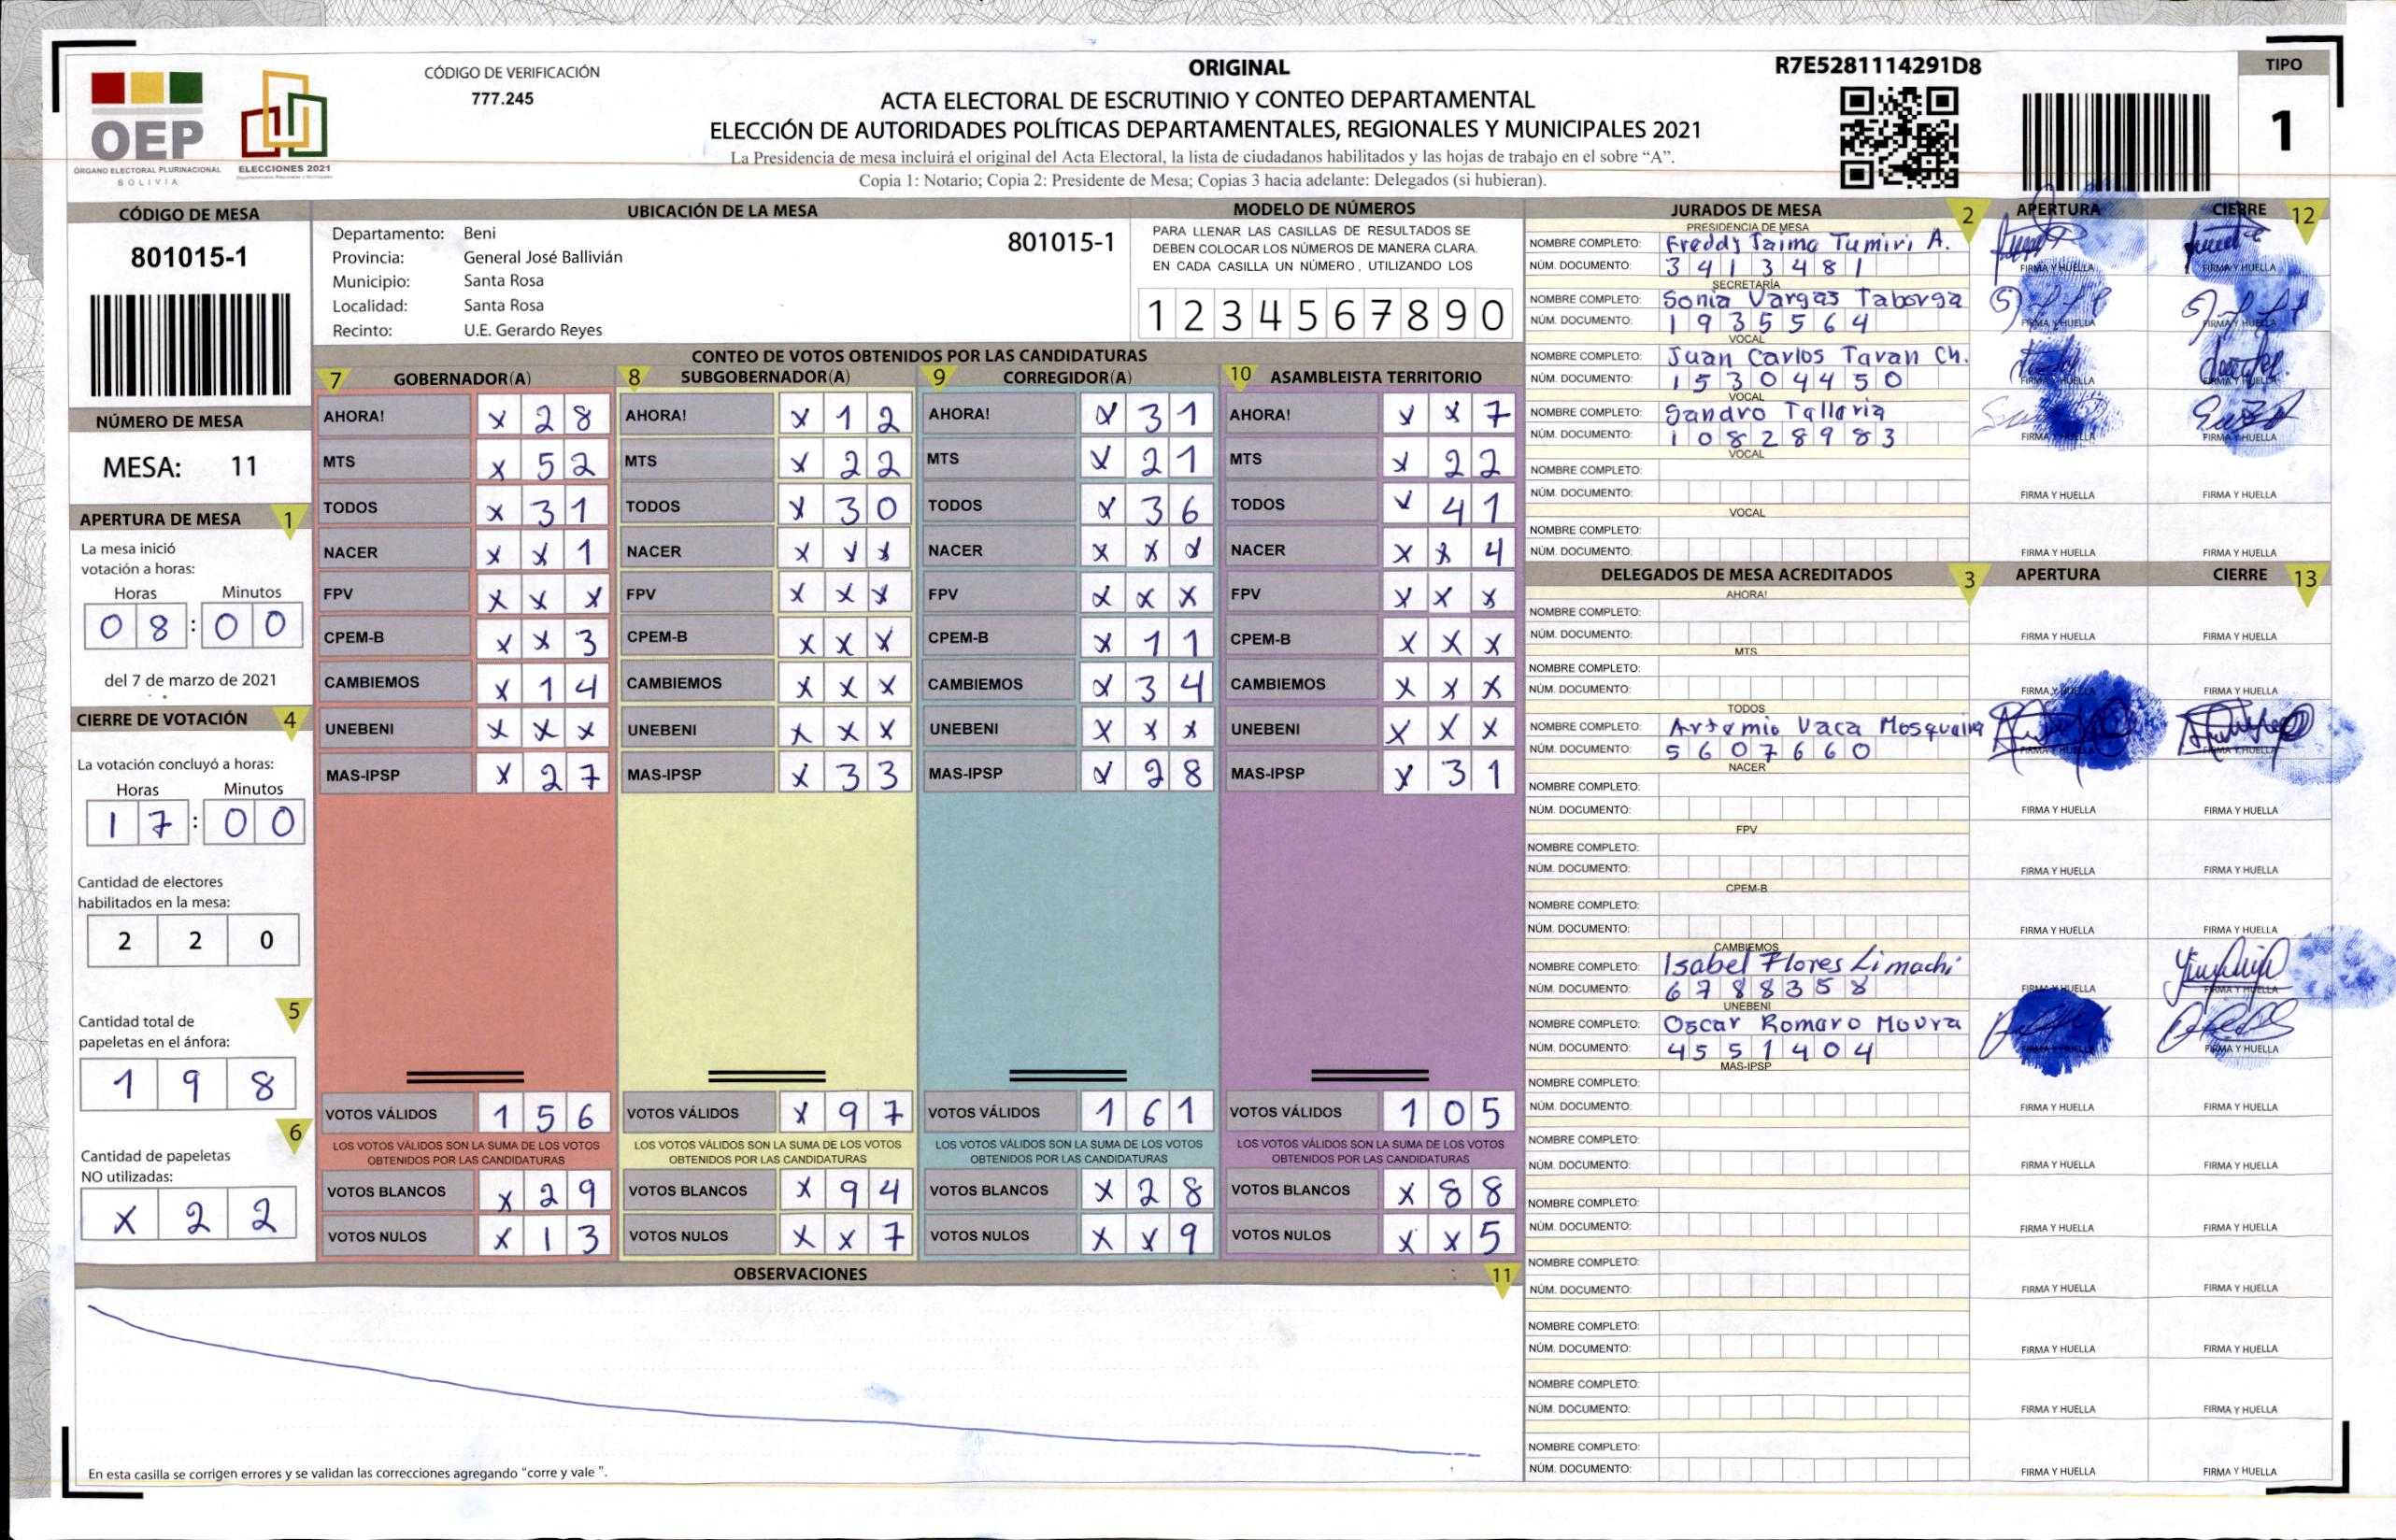 ORIGINAL
R7E5281114291D8
TIPO
1
OEP
ÓRGANO ELECTORAL PLURINACIONAL
BOLIVIA
ELECCIONES 2021
CÓDIGO DE VERIFICACIÓN
777.245
ACTA ELECTORAL DE ESCRUTINIO Y CONTEO DEPARTAMENTAL
ELECCIÓN DE AUTORIDADES POLÍTICAS DEPARTAMENTALES, REGIONALES Y MUNICIPALES 2021
La Presidencia de mesa incluirá el original del Acta Electoral, la lista de ciudadanos habilitados y las hojas de trabajo en el sobre “A”.
Copia 1: Notario; Copia 2: Presidente de Mesa; Copias 3 hacia adelante: Delegados (si hubieran).
CÓDIGO DE MESA
801015-1
NÚMERO DE MESA
MESA: 11
APERTURA DE MESA 1
La mesa inició
votación a horas:
Horas Minutos
0 8 : 0 0
del 7 de marzo de 2021
CIERRE DE VOTACIÓN 4
La votación concluyó a horas:
Horas Minutos
1 7 : 0 0
Cantidad de electores
habilitados en la mesa:
2 2 0
5
Cantidad total de
papeletas en el ánfora:
1 9 8
6
Cantidad de papeletas
NO utilizadas:
X 2 2
UBICACIÓN DE LA MESA
Departamento: Beni
801015-1
Provincia: General José Ballivián
Municipio: Santa Rosa
Localidad: Santa Rosa
Recinto: U.E. Gerardo Reyes
MODELO DE NÚMEROS
PARA LLENAR LAS CASILLAS DE RESULTADOS SE
DEBEN COLOCAR LOS NÚMEROS DE MANERA CLARA.
EN CADA CASILLA UN NÚMERO, UTILIZANDO LOS
1 2 3 4 5 6 7 8 9 0
CONTEO DE VOTOS OBTENIDOS POR LAS CANDIDATURAS
7 GOBERNADOR(A) 8 SUBGOBERNADOR(A) 9 CORREGIDOR(A) 10 ASAMBLEISTA TERRITORIO
AHORA! X 2 8 AHORA! X 1 2 AHORA! X 3 1 AHORA! X X 7
MTS X 5 2 MTS X 2 2 MTS X 2 1 MTS X 2 2
TODOS X 3 1 TODOS X 3 0 TODOS X 3 6 TODOS X 4 1
NACER X X 1 NACER X X X NACER X X X NACER X X 4
FPV X X X FPV X X X FPV X X X FPV X X X
CPEM-B X X 3 CPEM-B X X X CPEM-B X 1 1 CPEM-B X X X
CAMBIEMOS X 1 4 CAMBIEMOS X X X CAMBIEMOS X 3 4 CAMBIEMOS X X X
UNEBENI X X X UNEBENI X X X UNEBENI X X X UNEBENI X X X
MAS-IPSP X 2 7 MAS-IPSP X 3 3 MAS-IPSP X 2 8 MAS-IPSP X 3 1
VOTOS VÁLIDOS 1 5 6 VOTOS VÁLIDOS X 9 7 VOTOS VÁLIDOS 1 6 1 VOTOS VÁLIDOS 1 0 5
LOS VOTOS VÁLIDOS SON LA SUMA DE LOS VOTOS LOS VOTOS VÁLIDOS SON LA SUMA DE LOS VOTOS LOS VOTOS VÁLIDOS SON LA SUMA DE LOS VOTOS LOS VOTOS VÁLIDOS SON LA SUMA DE LOS VOTOS
OBTENIDOS POR LAS CANDIDATURAS OBTENIDOS POR LAS CANDIDATURAS OBTENIDOS POR LAS CANDIDATURAS OBTENIDOS POR LAS CANDIDATURAS
VOTOS BLANCOS X 2 9 VOTOS BLANCOS X 9 4 VOTOS BLANCOS X 2 8 VOTOS BLANCOS X 8 8
VOTOS NULOS X 1 3 VOTOS NULOS X X 7 VOTOS NULOS X X 9 VOTOS NULOS X X 5
OBSERVACIONES 11
En esta casilla se corrigen errores y se validan las correcciones agregando “corre y vale ”.
JURADOS DE MESA 2 APERTURA CIERRE 12
PRESIDENCIA DE MESA
NOMBRE COMPLETO: Freddy Jaime Tumiri A.
NÚM. DOCUMENTO: 3 4 1 3 4 8 1 FIRMA Y HUELLA FIRMA Y HUELLA
SECRETARÍA
NOMBRE COMPLETO: Sonia Vargas Taborga
NÚM. DOCUMENTO: 1 9 3 5 5 6 4 FIRMA Y HUELLA FIRMA Y HUELLA
VOCAL
NOMBRE COMPLETO: Juan Carlos Tavan Ch.
NÚM. DOCUMENTO: 1 5 3 0 4 4 5 0 FIRMA Y HUELLA FIRMA Y HUELLA
VOCAL
NOMBRE COMPLETO: Sandro Tallaria
NÚM. DOCUMENTO: 1 0 8 2 8 9 8 3 FIRMA Y HUELLA FIRMA Y HUELLA
VOCAL
NOMBRE COMPLETO:
NÚM. DOCUMENTO: FIRMA Y HUELLA FIRMA Y HUELLA
VOCAL
NOMBRE COMPLETO:
NÚM. DOCUMENTO: FIRMA Y HUELLA FIRMA Y HUELLA
DELEGADOS DE MESA ACREDITADOS 3 APERTURA CIERRE 13
AHORA!
NOMBRE COMPLETO:
NÚM. DOCUMENTO: FIRMA Y HUELLA FIRMA Y HUELLA
MTS
NOMBRE COMPLETO:
NÚM. DOCUMENTO: FIRMA Y HUELLA FIRMA Y HUELLA
TODOS
NOMBRE COMPLETO: Artemio Vaca Mosqueira
NÚM. DOCUMENTO: 5 6 0 7 6 6 0 FIRMA Y HUELLA FIRMA Y HUELLA
NACER
NOMBRE COMPLETO:
NÚM. DOCUMENTO: FIRMA Y HUELLA FIRMA Y HUELLA
FPV
NOMBRE COMPLETO:
NÚM. DOCUMENTO: FIRMA Y HUELLA FIRMA Y HUELLA
CPEM-B
NOMBRE COMPLETO:
NÚM. DOCUMENTO: FIRMA Y HUELLA FIRMA Y HUELLA
CAMBIEMOS
NOMBRE COMPLETO: Isabel Flores Limachi
NÚM. DOCUMENTO: 6 7 8 8 3 5 8 FIRMA Y HUELLA FIRMA Y HUELLA
UNEBENI
NOMBRE COMPLETO: Oscar Romero Moura
NÚM. DOCUMENTO: 4 5 5 1 4 0 4 FIRMA Y HUELLA FIRMA Y HUELLA
MAS-IPSP
NOMBRE COMPLETO:
NÚM. DOCUMENTO: FIRMA Y HUELLA FIRMA Y HUELLA
NOMBRE COMPLETO:
NÚM. DOCUMENTO: FIRMA Y HUELLA FIRMA Y HUELLA
NOMBRE COMPLETO:
NÚM. DOCUMENTO: FIRMA Y HUELLA FIRMA Y HUELLA
NOMBRE COMPLETO:
NÚM. DOCUMENTO: FIRMA Y HUELLA FIRMA Y HUELLA
NOMBRE COMPLETO:
NÚM. DOCUMENTO: FIRMA Y HUELLA FIRMA Y HUELLA
NOMBRE COMPLETO:
NÚM. DOCUMENTO: FIRMA Y HUELLA FIRMA Y HUELLA
NOMBRE COMPLETO:
NÚM. DOCUMENTO: FIRMA Y HUELLA FIRMA Y HUELLA